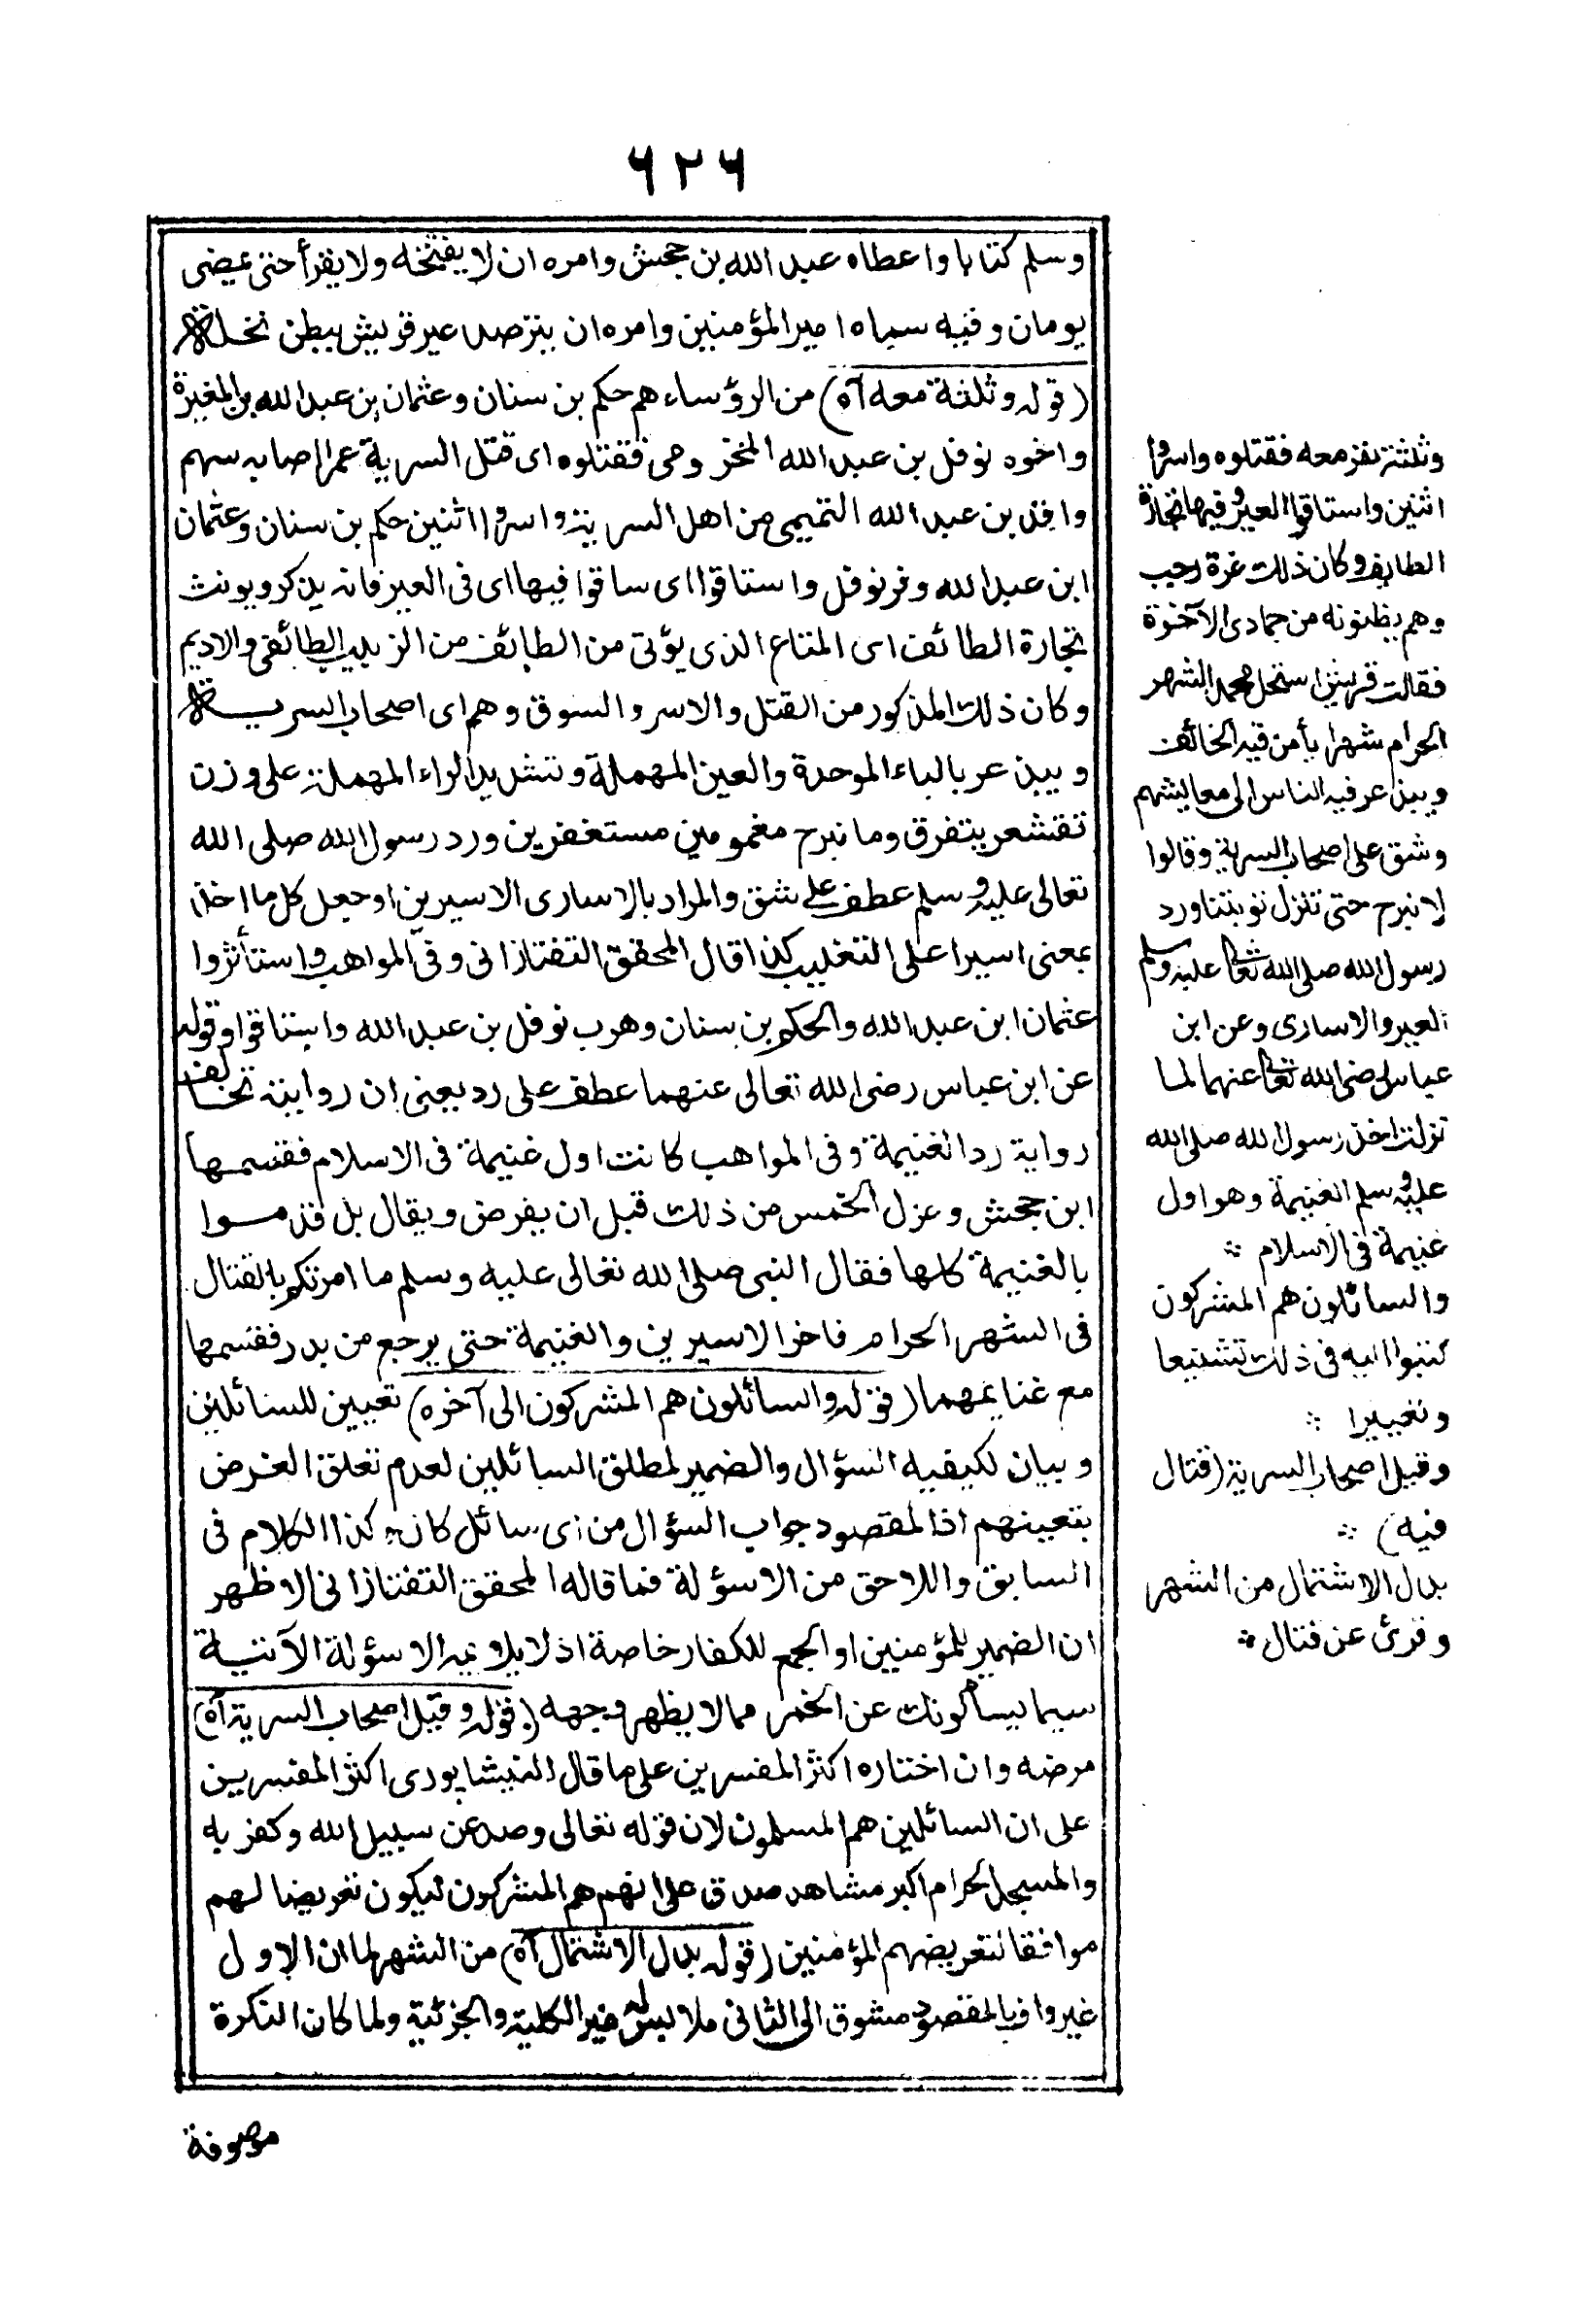 ٦٢٦
وسلم كتابا واعطاه عبد الله بن جحش وامره ان لا يفتحه ولا يقرأ حتى يمضى
يومان وفيه سماه امير المؤمنين وامره ان يترصد عير قريش ببطن نخلة
(قوله وثلثة معه آه) من الرؤساء هم حكم بن سنان وعثمان بن عبد الله بن المغيرة
واخوه نوفل بن عبد الله المخزومى فقتلوه اى قتل السرية عمرا اصابه سهم
وافد بن عبد الله التميمى من اهل السرية واسروا اثنين حكم بن سنان وعثمان
ابن عبد الله وفر نوفل واستاقوا اى ساقوا فيها اى فى العير فانه يذكر ويونث
تجارة الطائف اى المتاع الذى يؤتى من الطائف من الزبيب الطائفى والاديم
وكان ذلك المذكور من القتل والاسر والسوق وهم اى اصحاب السرية
ويبذعر بالباء الموحدة والعين المهملة وتشديد الراء المهملة على وزن
تقشعر يتفرق وما نبرح مغمومين مستغفرين ورد رسول الله صلى الله
تعالى عليه وسلم عطف على شق والمراد بالاسارى الاسيرين او جعل كل ما اخذ
بمعنى اسيرا على التغليب كذا قال المحقق التفتازانى وفى المواهب واستأثروا
عثمان ابن عبد الله والحكم بن سنان وهرب نوفل بن عبد الله واستاقوا وقوله
عن ابن عباس رضى الله تعالى عنهما عطف على رد يعنى ان روايته تخالف
رواية رد الغنيمة وفى المواهب كانت اول غنيمة فى الاسلام فقسمها
ابن جحش وعزل الخمس من ذلك قبل ان يفرض ويقال بل قدموا
بالغنيمة كلها فقال النبى صلى الله تعالى عليه وسلم ما امرتكم بالقتال
فى الشهر الحرام فاخر الاسيرين والغنيمة حتى يرجع من بدر فقسمها
مع غنايمهما (قوله والسائلون هم المشركون الى آخره) تعيين للسائلين
وبيان لكيفيه السؤال والضمير لمطلق السائلين لعدم تعلق الغرض
بتعيينهم اذ المقصود جواب السؤال من اى سائل كان كذا الكلام فى
السابق واللاحق من الاسؤلة فما قاله المحقق التفتازانى الاظهر
ان الضمير للمؤمنين او الجمع للكفار خاصة اذ لا يلايمه الاسؤلة الآتية
سيما يسألونك عن الخمر مما لا يظهر وجهه (قوله وقيل اصحاب السرية آه)
مرضه وان اختاره اكثر المفسرين على ما قال النيشابورى اكثر المفسرين
على ان السائلين هم المسلمون لان قوله تعالى وصد عن سبيل الله وكفر به
والمسجد الحرام اكبر مشاهد صدق على انهم هم المشركون ليكون تعريضا لهم
موافقا لتعريضهم المؤمنين (قوله بدل الاشتمال آه) من الشهر لما ان الاول
غير واف بالمقصود مشوق الى الثانى ملابس له غير الكلية والجزئية ولما كان النكرة
موصوفة
وثلثة نفر معه فقتلوه واسروا
اثنين واستاقوا العير وفيها تجارة
الطايف وكان ذلك غرة رجب
وهم يظنونه من جمادى الآخرة
فقالت قريش استحل محمد الشهر
الحرام شهرا يأمن فيه الخائف
ويبذعر فيه الناس الى معايشهم
وشق على اصحاب السرية وقالوا
لا نبرح حتى تنزل توبتنا ورد
رسول الله صلى الله تعالى عليه وسلم
العير والاسارى وعن ابن
عباس رضى الله تعالى عنهما لما
نزلت اخذ رسول الله صلى الله
عليه وسلم الغنيمة وهو اول
غنيمة فى الاسلام
والسائلون هم المشركون
كتبوا اليه فى ذلك تشنيعا
وتعييرا
وقيل اصحاب السرية (قتال
فيه)
بدل الاشتمال من الشهر
وقرئ عن قتال